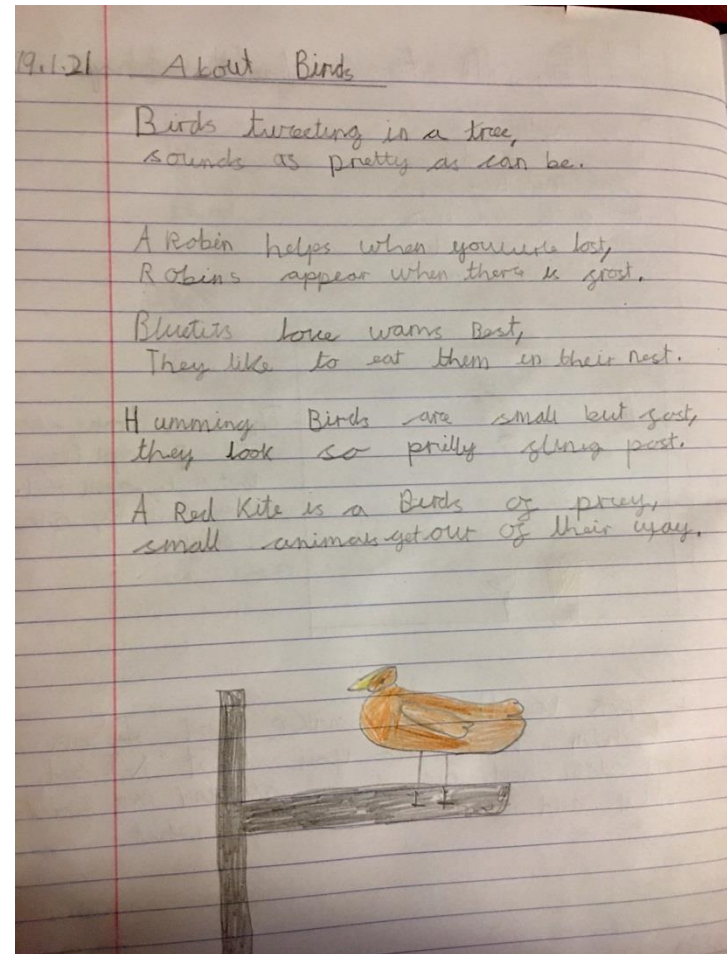 19.1.21 About Birds
Birds tweeting in a tree,
sounds as pretty as can be.
A Robin helps when you're lost,
Robins appear when there is frost.
Bluetits love wams Best,
They like to eat them in their nest.
Humming Birds are small but fast,
they look so pritty fliing past.
A Red Kite is a Birds of prey,
small animals get out of their way.